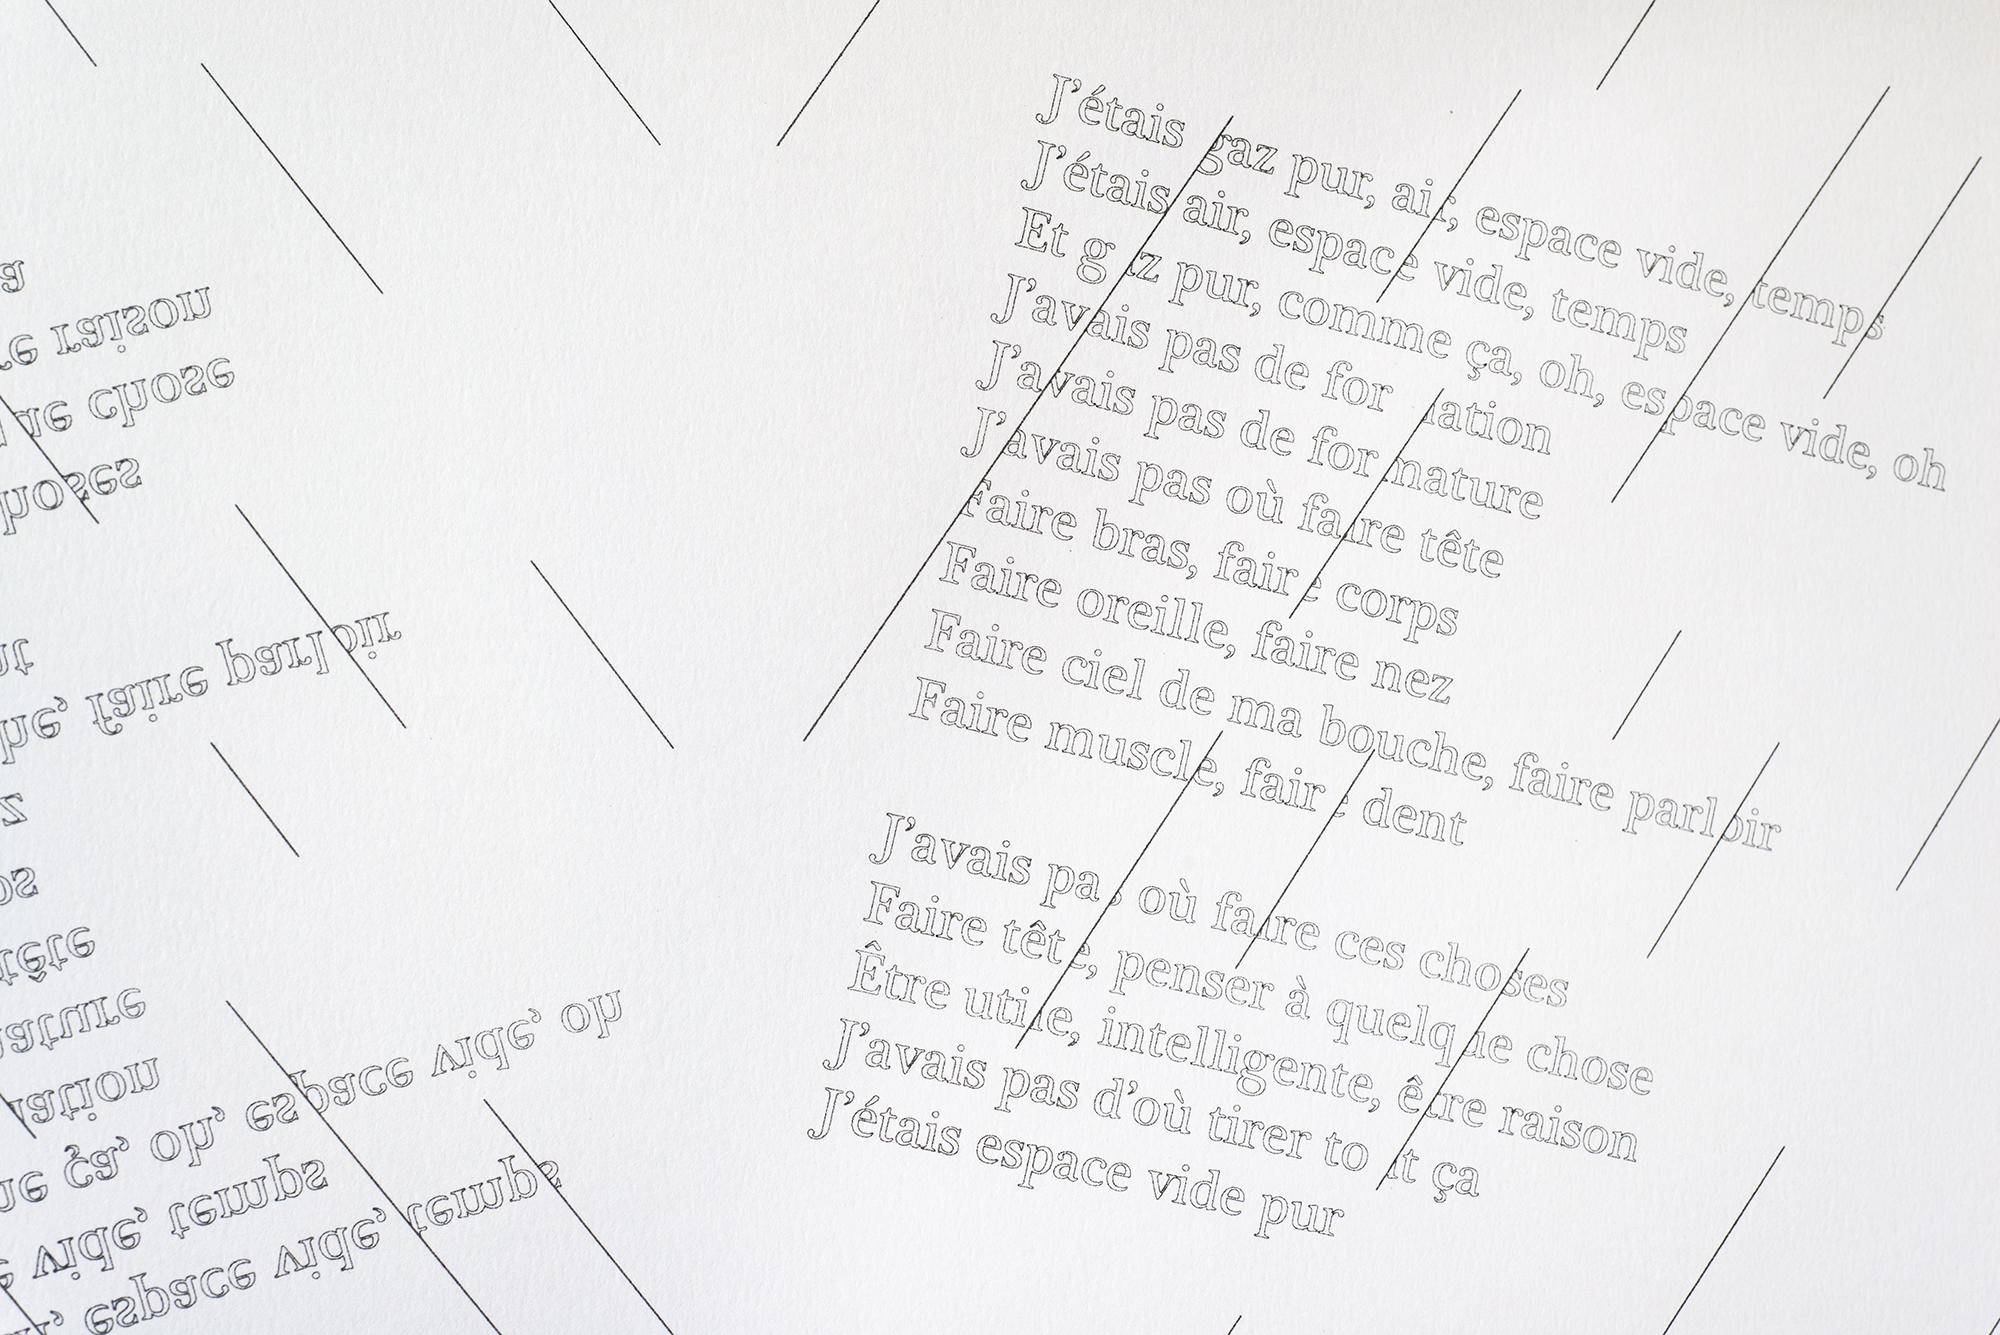 J’étais gaz pur, air, espace vide, temps
J’étais air, espace vide, temps
Et gaz pur, comme ça, oh, espace vide, oh
J’avais pas de formation
J’avais pas de formature
J’avais pas où faire tête
Faire bras, faire corps
Faire oreille, faire nez
Faire ciel de ma bouche, faire parloir
Faire muscle, faire dent
J’avais pas où faire ces choses
Faire tête, penser à quelque chose
Être utile, intelligente, être raison
J’avais pas d’où tirer tout ça
J’étais espace vide pur
raison
chose
faire parloir
tête
ça, oh, espace vide, oh
vide, temps
espace vide, temps